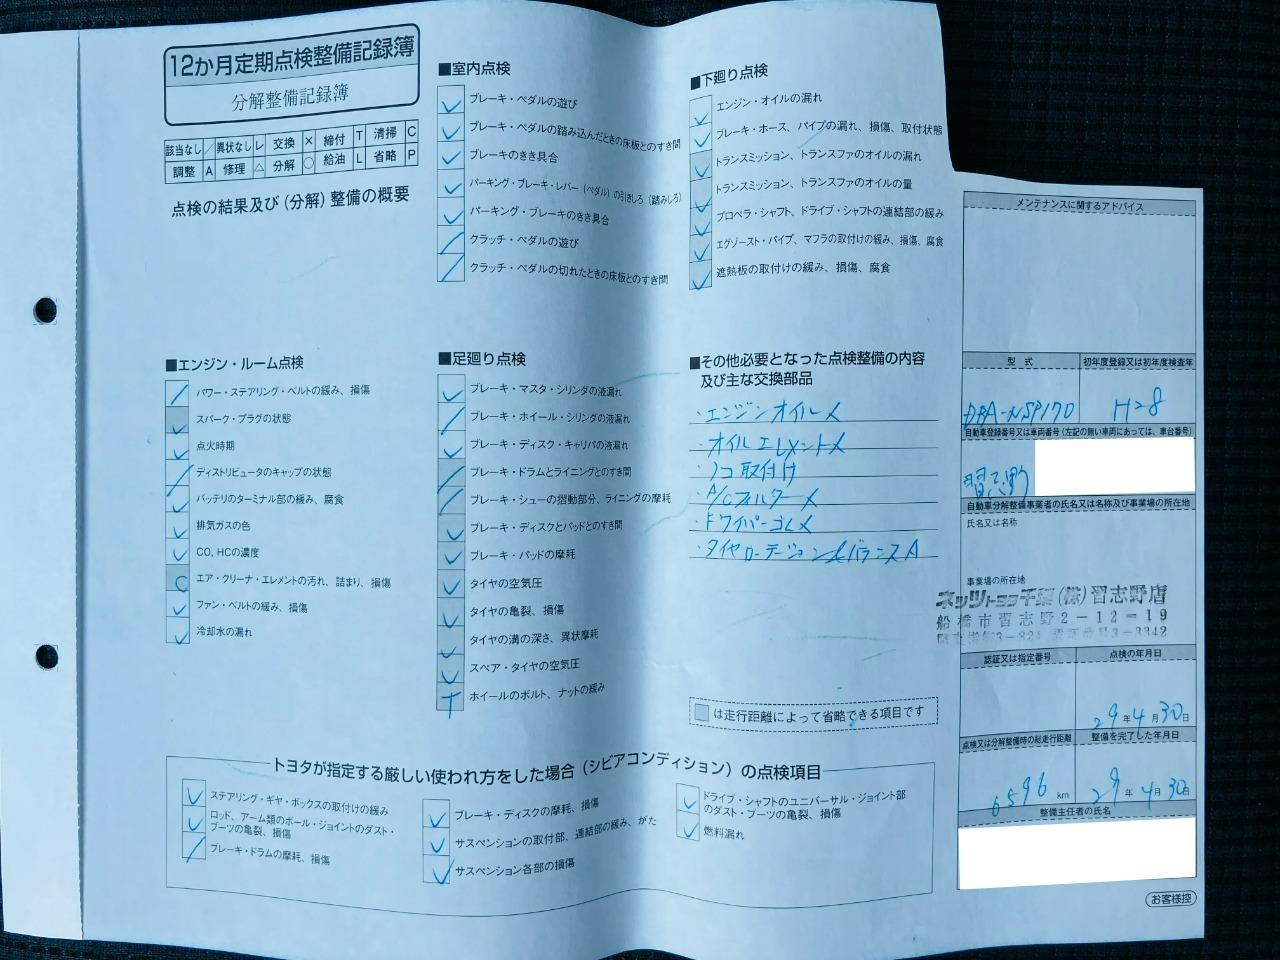 12か月定期点検整備記録簿
分解整備記録簿
該当なし / 異状なし レ 交換 × 締付 T 清掃 C
調整 A 修理 △ 分解 ○ 給油 L 省略 P
点検の結果及び(分解)整備の概要
■エンジン・ルーム点検
パワー・ステアリング・ベルトの緩み、損傷
スパーク・プラグの状態
点火時期
ディストリビュータのキャップの状態
バッテリのターミナル部の緩み、腐食
排気ガスの色
CO, HCの濃度
C エア・クリーナ・エレメントの汚れ、詰まり、損傷
ファン・ベルトの緩み、損傷
冷却水の漏れ
■室内点検
ブレーキ・ペダルの遊び
ブレーキ・ペダルの踏み込んだときの床板とのすき間
ブレーキのきき具合
パーキング・ブレーキ・レバー(ペダル)の引きしろ(踏みしろ)
パーキング・ブレーキのきき具合
クラッチ・ペダルの遊び
クラッチ・ペダルの切れたときの床板とのすき間
■足廻り点検
ブレーキ・マスタ・シリンダの液漏れ
ブレーキ・ホイール・シリンダの液漏れ
ブレーキ・ディスク・キャリパの液漏れ
ブレーキ・ドラムとライニングとのすき間
ブレーキ・シューの摺動部分、ライニングの摩耗
ブレーキ・ディスクとパッドとのすき間
ブレーキ・パッドの摩耗
タイヤの空気圧
タイヤの亀裂、損傷
タイヤの溝の深さ、異状摩耗
スペア・タイヤの空気圧
T ホイールのボルト、ナットの緩み
■下廻り点検
エンジン・オイルの漏れ
ブレーキ・ホース、パイプの漏れ、損傷、取付状態
トランスミッション、トランスファのオイルの漏れ
トランスミッション、トランスファのオイルの量
プロペラ・シャフト、ドライブ・シャフトの連結部の緩み
エグゾースト・パイプ、マフラの取付けの緩み、損傷、腐食
遮熱板の取付けの緩み、損傷、腐食
■その他必要となった点検整備の内容
及び主な交換部品
・エンジンオイル×
・オイルエレメント×
取付け
・A/Cフィルター×
・Fワイパーゴム×
・タイヤローテーション&バランスA
は走行距離によって省略できる項目です
トヨタが指定する厳しい使われ方をした場合(シビアコンディション)の点検項目
ステアリング・ギヤ・ボックスの取付けの緩み
ロッド、アーム類のボール・ジョイントのダスト・
ブーツの亀裂、損傷
ブレーキ・ドラムの摩耗、損傷
ブレーキ・ディスクの摩耗、損傷
サスペンションの取付部、連結部の緩み、がた
サスペンション各部の損傷
ドライブ・シャフトのユニバーサル・ジョイント部
のダスト・ブーツの亀裂、損傷
燃料漏れ
メンテナンスに関するアドバイス
型式 初年度登録又は初年度検査年
DBA-NSP170 H28
自動車登録番号又は車両番号(左記の無い車両にあっては、車台番号)
習志野
自動車分解整備事業者の氏名又は名称及び事業場の所在地
氏名又は名称
事業場の所在地
ネッツトヨタ千葉(株)習志野店
船橋市習志野2-12-19
認証又は指定番号 点検の年月日
29年4月30日
点検又は分解整備時の総走行距離 整備を完了した年月日
6596km 29年4月30日
整備主任者の氏名
お客様控